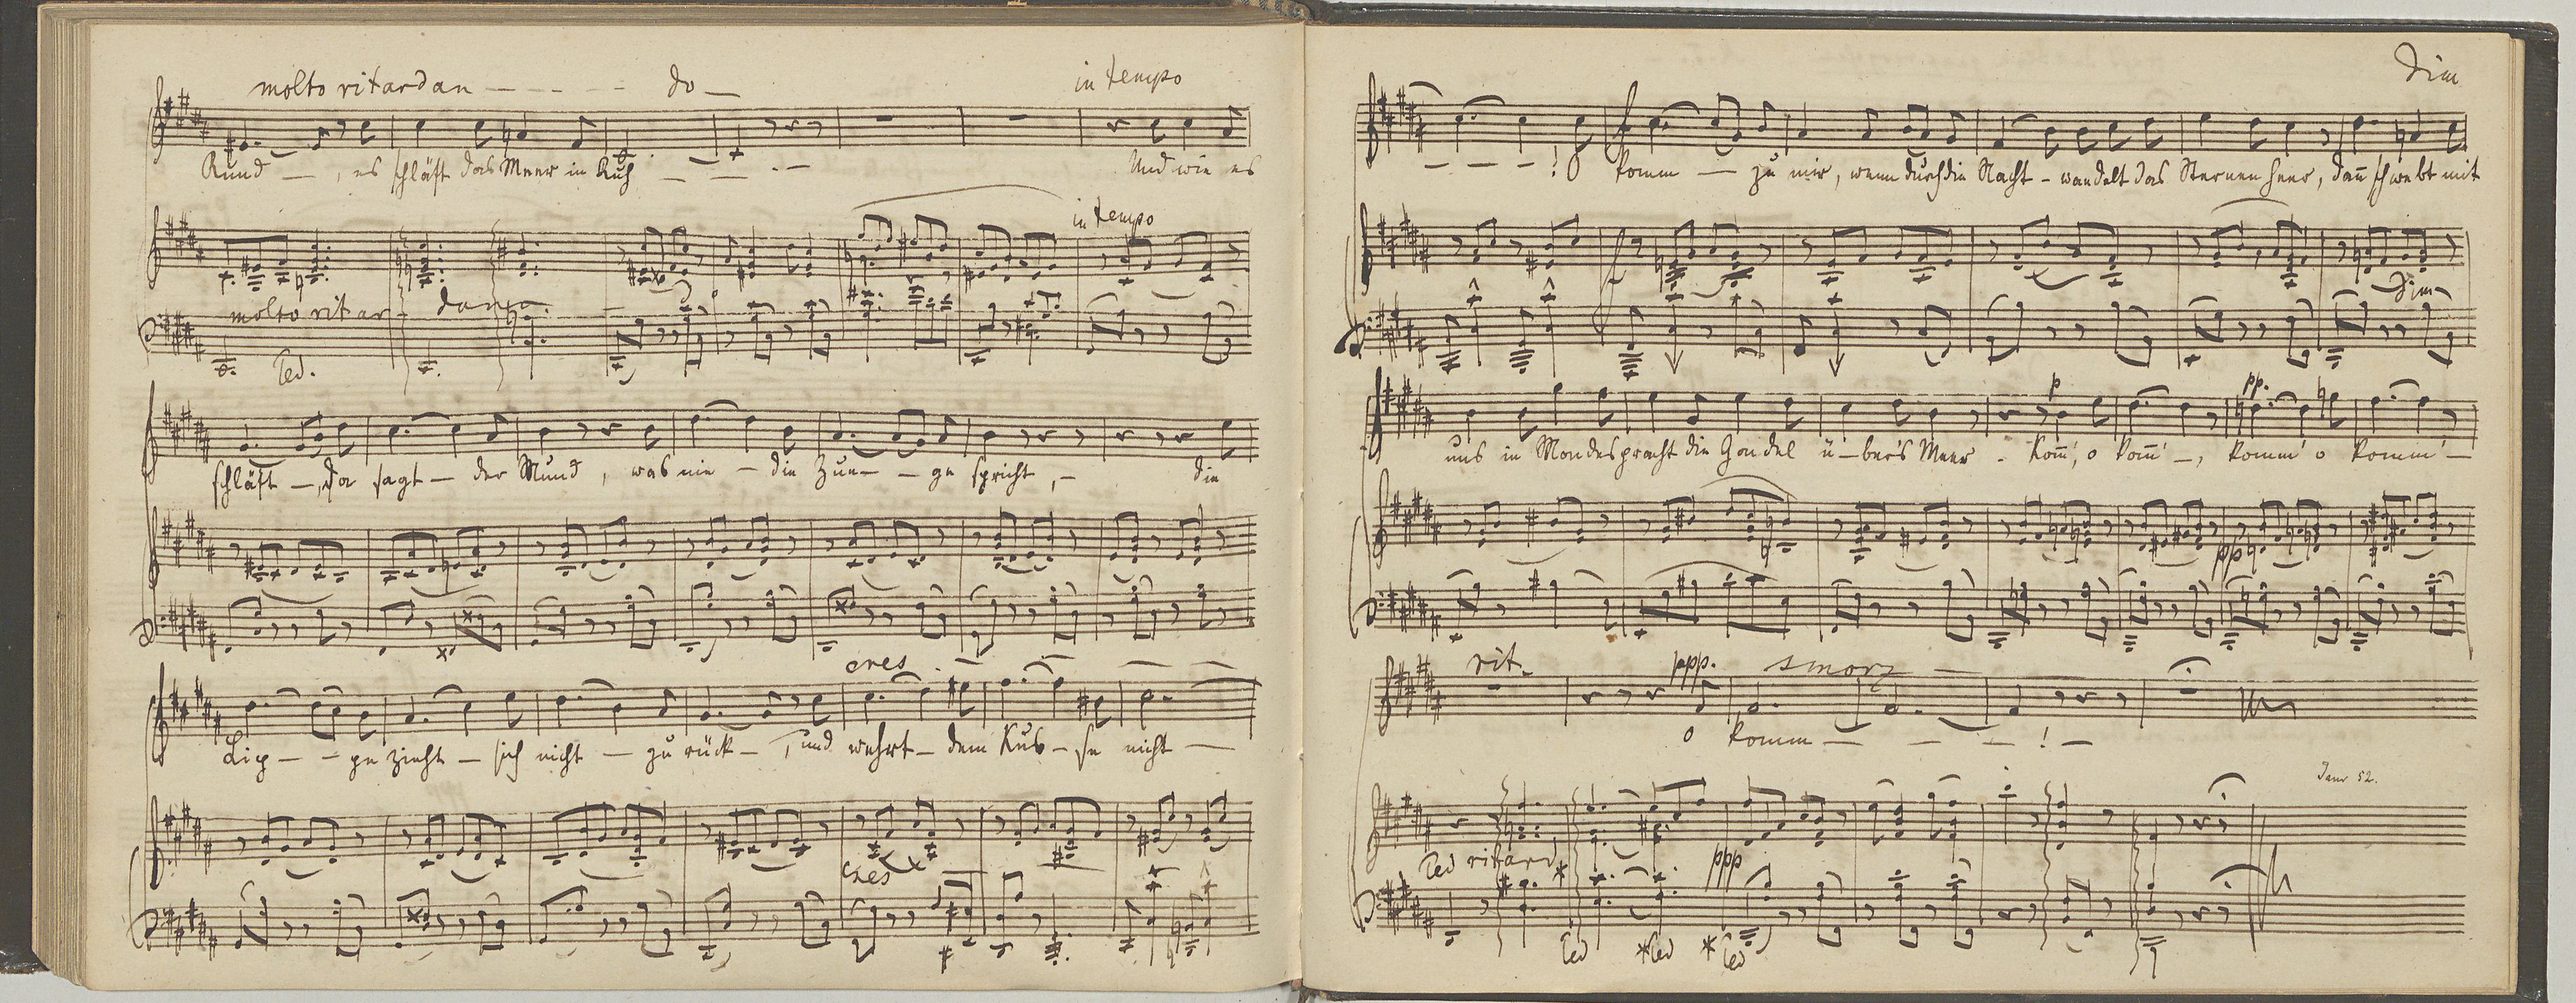 molto ritardan - - - - do -
in tempo
Rund -, es schläft das Meer in Ruh - - - - Und wie es
in tempo
molto ritar - dando
Ped.
schläft -, da sagt - der Mund, was nie - die Zun - - ge spricht, - die
cres. - - - -
Lip - - pe zieht - sich nicht - zu rück -, und wehrt - dem Kus - se nicht -
cres
Dim
- - - -! O komm - zu mir, wenn durch die Nacht - wandelt das Sternen heer, dañ schwebt mit
f
f
dim
p pp.
uns in Mondespracht die Gondel ü - ber's Meer - Kom̄', o kom̄' -, komm' o komm' -
pp
rit. ppp. smorz -
o komm - - - -! -
Janr 52.
Ped ritard * ppp
Ped *Ped *Ped